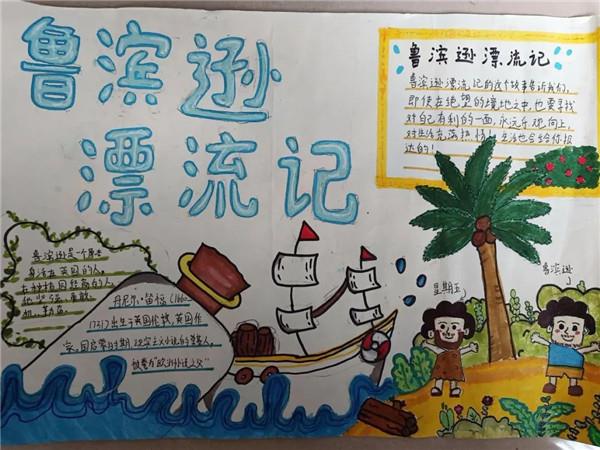 鲁滨逊
漂流记
鲁滨逊漂流记
鲁滨逊漂流记的这个故事告诉我们,
即使在绝望的境地之中,也要寻找
对自己有利的一面,永远乐观向上,
对生活充满热情,生活也会给你报
达的!
鲁滨逊是一个原
生活在英国的人,
丹尼尔·笛福(1660-
1731)出生于英国伦敦,英国作
家,同启蒙时期现实主义小说的奠基人,
被誉为"欧洲小说之父"
星期五
鲁滨逊